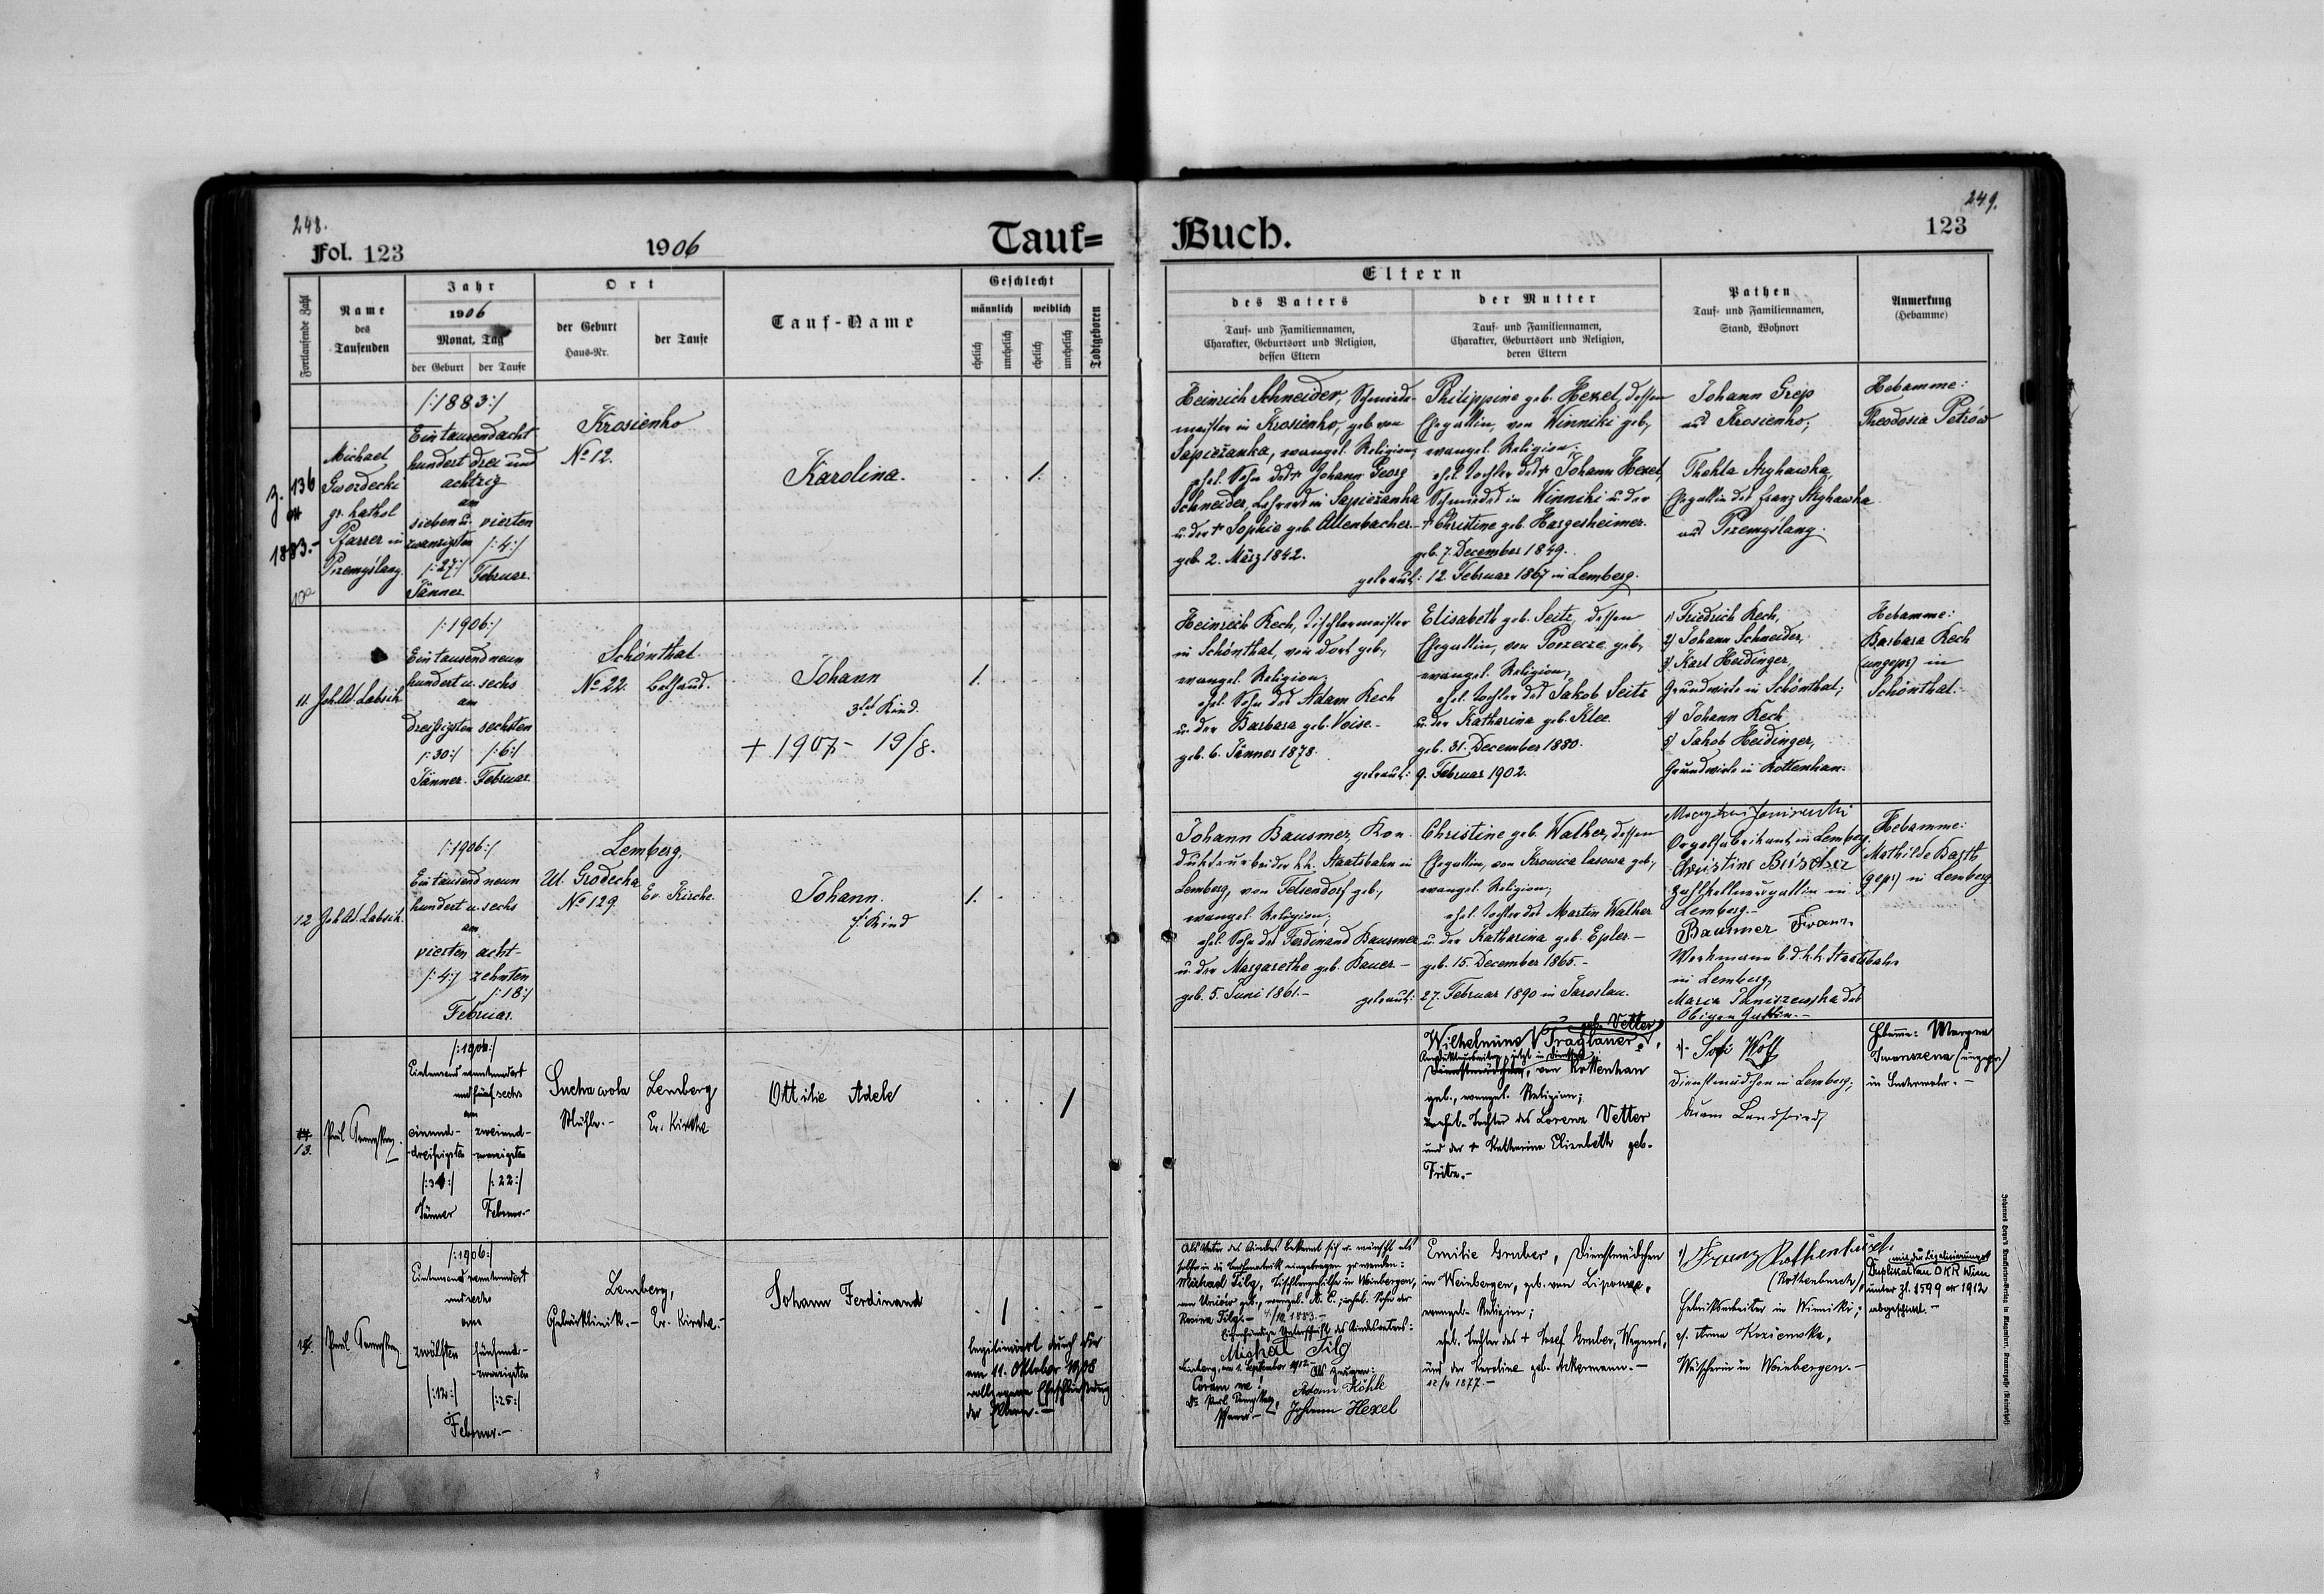 248.
Fol. 123
1906
Tauf=
Buch.
249.
123
Fortlaufende Zahl
Name
des
Taufenden
Jahr
1906
Monat, Tag
der Geburt
der Taufe
Ort
der Geburt
Haus-Nr.
der Taufe
Tauf-Name
Geschlecht
männlich
weiblich
ehelich
unehelich
ehelich
unehelich
Todtgeboren
Eltern
des Vaters
Tauf- und Familiennamen,
Charakter, Geburtsort und Religion,
dessen Eltern
der Mutter
Tauf- und Familiennamen,
Charakter, Geburtsort und Religion,
deren Eltern
Pathen
Tauf- und Familiennamen,
Stand, Wohnort
Anmerkung
(Hebamme)
Z. 136
1883.-
10a
Michael
Gwozdecki
gr. kathol
Pfarrer in
Przemyślany.
/:1883:/
Ein tausend acht
hundert drei und
achtzig
am
sieben u.
zwanzigsten
/:27:/
Jänner
vierten
/:4:/
Februar.
Krosienko
No 12.
Karolina.
1.
Heinrich Schneider, Schmiede-
meister in Krosienko, geb. von
Sapieżanka, evangel. Religion,
ehel. Sohn des + Johann Georg
Schneider, Lehrers in Sapieżanka
u. der + Sophie geb. Allenbacher.-
geb. 2. März 1842.
Philippine geb. Hexel, dessen
Ehegattin, von Winniki geb.,
evangel. Religion;
ehel. Tochter des + Johann Hexel,
Schmiedes in Winniki u. der
+ Christine geb. Hargesheimer.
geb. 7. December 1849.
getraut: 12. Februar 1867 in Lemberg.
Johann Grep
aus Krosienko;
Thekla
Ehegattin des Franz
aus Przemyślany.
Hebamme:
Theodosia Petrów
11.
Joh. Ad. Labsik
/:1906:/
Ein tausend neun
hundert u. sechs
am
dreißigsten
/:30:/
Jänner.
sechsten
/:6:/
Februar.
Schönthal.
No 22.
Bethaus.
Johann
3tes Kind.
+ 1907 - 19/8.
1.
Heinrich Kech, Tischlermeister
in Schönthal, von dort geb.,
evangel. Religion,
ehel. Sohn des Adam Kech
u. der Barbara geb. Voise.-
geb. 6. Jänner 1878.
Elisabeth geb. Seitz, dessen
Ehegattin, von Porzecze geb.,
evangel. Religion,
ehel. Tochter des Jakob Seitz
u. der Katharina geb. Klee.
geb. 31. December 1880.
getraut: 9. Februar 1902.
1) Friedrich Kech,
2) Johann Schneider,
3) Karl Heidinger,
Grundwirte in Schönthal;
4) Johann Kech
5) Jakob Heidinger,
Grundwirte in Rottenhan.
Hebamme:
Barbara Kech
(ungepr) in
Schönthal.
12
Joh. Ad. Labsik.
/:1906:/
Ein tausend neun
hundert u. sechs
am
vierten
/:4:/
acht-
zehnten
/:18:/
Februar.
Lemberg,
Ul. Grodecka
No 129
Ev. Kirche.
Johann.
Kind
1.
Johann Bausmer, Kon-
dukteur bei der k.k. Staatsbahn in
Lemberg, von Felsendorf geb.,
evangel. Religion;
ehel. Sohn des Ferdinand Bausmer
u. der Margarethe geb. Bauer.-
geb. 5. Juni 1861.-
Christine geb. Walher, dessen
Ehegattin, von Krowica lasowa geb.,
evangel. Religion,
ehel. Tochter des Martin Walher
u. der Katharina geb. Epler.-
geb. 15. December 1865.-
getraut: 27. Februar 1890 in Jaroslau.
Orgelfabrikant in Lemberg;
Christine
Zahlkellnersgattin in
Lemberg.-
Bausmer Franz
Werkmann b. d. k.k. Staatsbahn
in Lemberg,
Maria Janiszewska des
Obigen Gattin.-
Hebamme:
Mathilde Barth
(gepr) in Lemberg
13.
Paul
/:1906:/
Eintausend neunhundert
und fünf sechs
am
einund-
dreißigsten
/:31:/
Jänner
zweiund-
zwanzigsten
/:22:/
Februar.-
Sucha wola
Mühle.-
Lemberg
Ev. Kirche
Ottilie Adele
1
geb. Vetter
Wilhelmine Traglauer,
Dienstmädchen, von Rottenhan
geb., evangel. Religion;
ehel. Tochter des Lorenz Vetter
und der + Katharina Elisabeth geb.
Fritz.-
1). Sofi Wolf
Dienstmädchen in Lemberg;
Hebamme:
(ungepr)
14.
Paul
/:1906:/
Eintausend neunhundert
und sechs
am
zwölften
/:12:/
fünfund-
zwanzigsten
/:25:/
Februar.-
Lemberg,
Gebärklinik.-
Ev. Kirche.-
Johann Ferdinand
1
legitimiert durch die
am 11. Oktober 1908
vollzogene Eheschließung
der Eltern.-
Als Vater des Kindes bekennt sich u. wünscht als
solcher in die Taufmatrik eingetragen zu werden:
Michael Filg, Tischlergehilfe in Weinbergen,
von Unióiv geb., evangel. A. C., unehel. Sohn der
Rosina Filg.-
Eigenhändige Unterschrift des Kindesvaters:
Michał Filg
Lemberg, am 1. September 1912.-
Coram me!
Pfarrer.-
Als Zeugen:
Adam Köhle
Johann Hexel
Emilie Gruber, Dienstmädchen
in Weinbergen, geb. von Lipowce,
evangel. Religion;
ehel. Tochter des + Josef Gruber, Wagners,
und der Karoline geb. Ackermann.-
12/4 1877.-
1) Franz Rothenbusch
(Rothenbusch),
Fabriksarbeiter in Winniki;
2). Anna
Wäscherin in Weinbergen.-
mit der Legitimierung
Duplikat an OKR Wien
unter Zl. 1599 ex 1912
abgeschickt.-